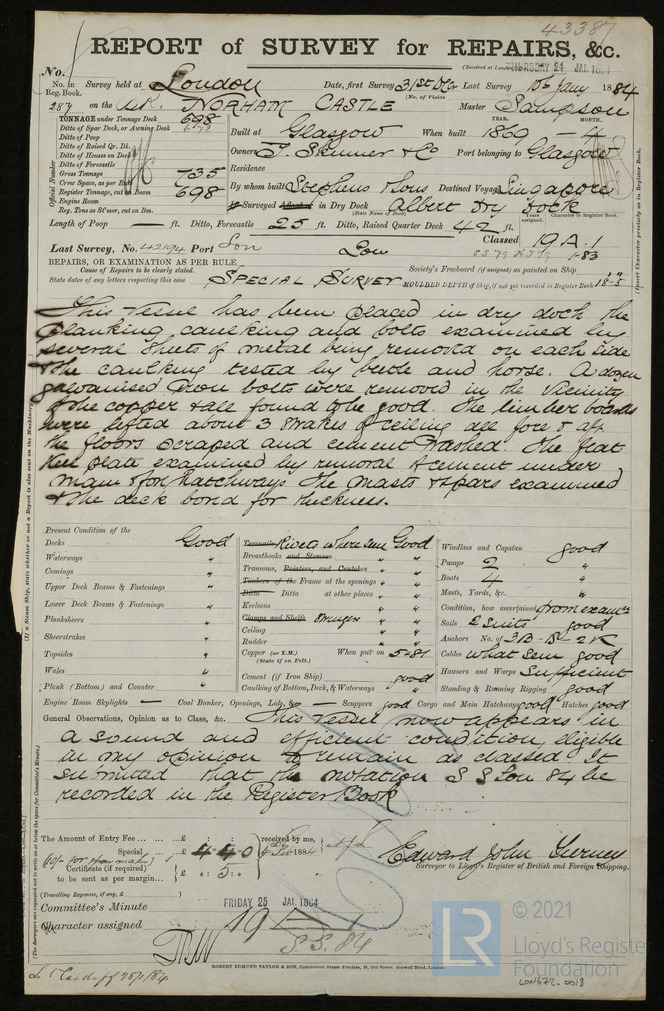 43387
REPORT of SURVEY for REPAIRS, &c.
(Received at London THURSDAY 24 JAN. 1884
No.
No. in Reg. Book. Survey held at London Date, first Survey 31st Dec Last Survey 10th Jany 1884
(No. of Visits
287 on the NORHAM CASTLE Master Sampson
TONNAGE under Tonnage Deck 698
Ditto of Spar Deck, or Awning Deck
Ditto of Poop
Ditto of Raised Qr. Dk.
Ditto of Houses on Deck
Ditto of Forecastle
Gross Tonnage 735
Crew Space, as per Rule
Register Tonnage, cut on Beam 698
Engine Room
Reg. Tons as St'mer, cut on Bm.
Official Number
YEAR. MONTH.
Built at Glasgow When built 1869 - 4
Owners T. Skinner & Co Port belonging to Glasgow
Residence
By whom built Stephens & Sons Destined Voyage Singapore
If Surveyed Afloat or in Dry Dock Albert Dry Dock
(State Name of Dock)
Years assigned. Character in Register Book.
(Insert Character precisely as in Register Book.
Length of Poop — ft. Ditto, Forecastle 25 ft. Ditto, Raised Quarter Deck 42 ft.
Last Survey, No. 42194 Port Lon Lon Classed 19 A.1
1-83
REPAIRS, OR EXAMINATION AS PER RULE
Cause of Repairs to be clearly stated.
State dates of any letters respecting this case
SPECIAL SURVEY
Society's Freeboard (if assigned) as painted on Ship
MOULDED DEPTH of Ship, if not yet recorded in Register Book 18-5
This Vessel has been placed in dry dock the
planking caulking and bolts examined by
several sheets of metal being removed on each side
& the caulking tested by beetle and horse. A dozen
galvanised Iron bolts were removed in the Vicinity
of the copper & all found to be good. The limber boards
were lifted about 3 strakes of ceiling all fore & aft
the floors scraped and cement washed. The flat
Keel plate examined by removal of cement under
main & fore hatchways the masts & spars examined
& the deck bored for thickness.
(If a Steam Ship, state whether or not a Report is also sent on the Machinery.
Present Condition of the
Decks Good
Waterways "
Comings "
Upper Deck Beams & Fastenings "
Lower Deck Beams & Fastenings "
Planksheers "
Sheerstrakes "
Topsides "
Wales "
Plank (Bottom) and Counter "
Treenails Rivets where seen Good
Breasthooks and Stemson " "
Transoms, Pointers, and Crutches " "
Timbers of the Frame at the openings " "
Ditto Ditto at other places " "
Keelsons " "
Clamps and Shelfs Stringer " "
Ceiling " "
Rudder " "
Copper (or Y.M.) When put on 5-81
(State if on Felt.)
Cement (if Iron Ship) good
Caulking of Bottom, Deck, & Waterways "
Windlass and Capstan good
Pumps 2 "
Boats 4 "
Masts, Yards, &c. "
Condition, how ascertained from exam
Sails 2 suits good
Anchors No. of 3B-1S-2K
Cables what seen good
Hawsers and Warps sufficient
Standing & Running Rigging good
Engine Room Skylights — Coal Bunker, Openings, Lids, &c. — Scuppers good Cargo and Main Hatchways good Hatches good
General Observations, Opinion as to Class, &c. This Vessel now appears in
a sound and efficient condition, eligible
in my opinion to remain as classed. It
submitted that the notation S S Lon 84 be
recorded in the Register Book
The Amount of Entry Fee ... £ : : received by me,
Special ... £ 4-4-0
1884
Certificate (if required)
to be sent as per margin... £ : 5 :
(Travelling Expenses, if any, £
Edward John Tierney
Surveyor to Lloyd's Register of British and Foreign Shipping.
Committee's Minute FRIDAY 25 JAN. 1884
Character assigned 19 A 1
S.S. 84
ROBERT EDMUND TAYLOR & SON, Commercial Steam Printers, 19, Old Street, Goswell Road, London.
LR
© 2021
Lloyd's Register
Foundation
LON672-0018